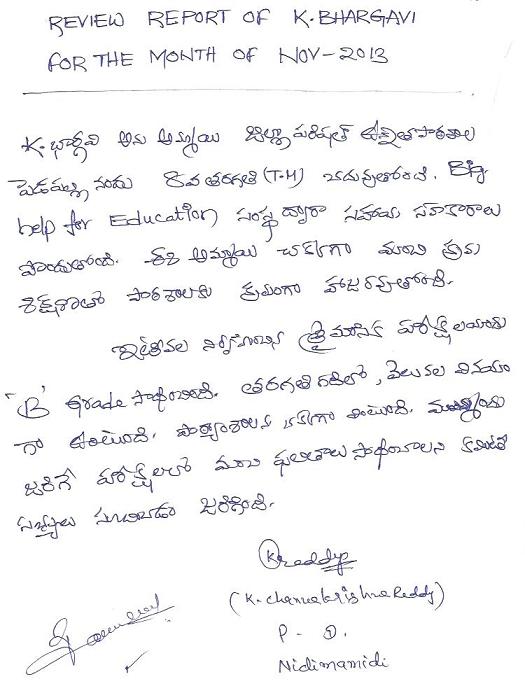 REVIEW REPORT OF K. BHARGAVI
FOR THE MONTH OF NOV-2013
K. భార్గవి అను అమ్మాయి జిల్లా పరిషత్ ఉన్నతపాఠశాల
నందు 8వ తరగతి (T-M) చదువుతోంది.
help for Education సంస్థ ద్వారా సహాయ సహకారాలు
పొందుతోంది. ఈ అమ్మాయి చక్కగా మంచి క్రమ
శిక్షణతో పాఠశాలకు క్రమంగా హాజరవుతోంది.
ఇటీవల నిర్వహించిన త్రైమాసిక పరీక్షలయందు
'B' Grade సాధించింది. తరగతి గదిలో, వెలుపల వినయం
గా ఉంటుంది. పాఠ్యాంశాలను చక్కగా వింటుంది.
జరిగే పరీక్షలలో మంచి ఫలితాలు సాధించాలని కమిటీ
సభ్యులు సూచించడం జరిగింది.
KReddy
(K. Reddy)
P. D.
Nidimamidi